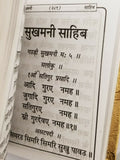 सुखमनी साहिब
गउड़ी सुखमनी मः ५ ॥
सलोकु ॥
१ओं सतिगुर प्रसादि ॥
आदि गुरए नमह ॥
जुगादि गुरए नमह ॥
सतिगुरए नमह ॥
स्री गुरदेवए नमह ॥१॥
असटपदी ॥
सिमरउ सिमरि सिमरि सुखु पावउ ॥